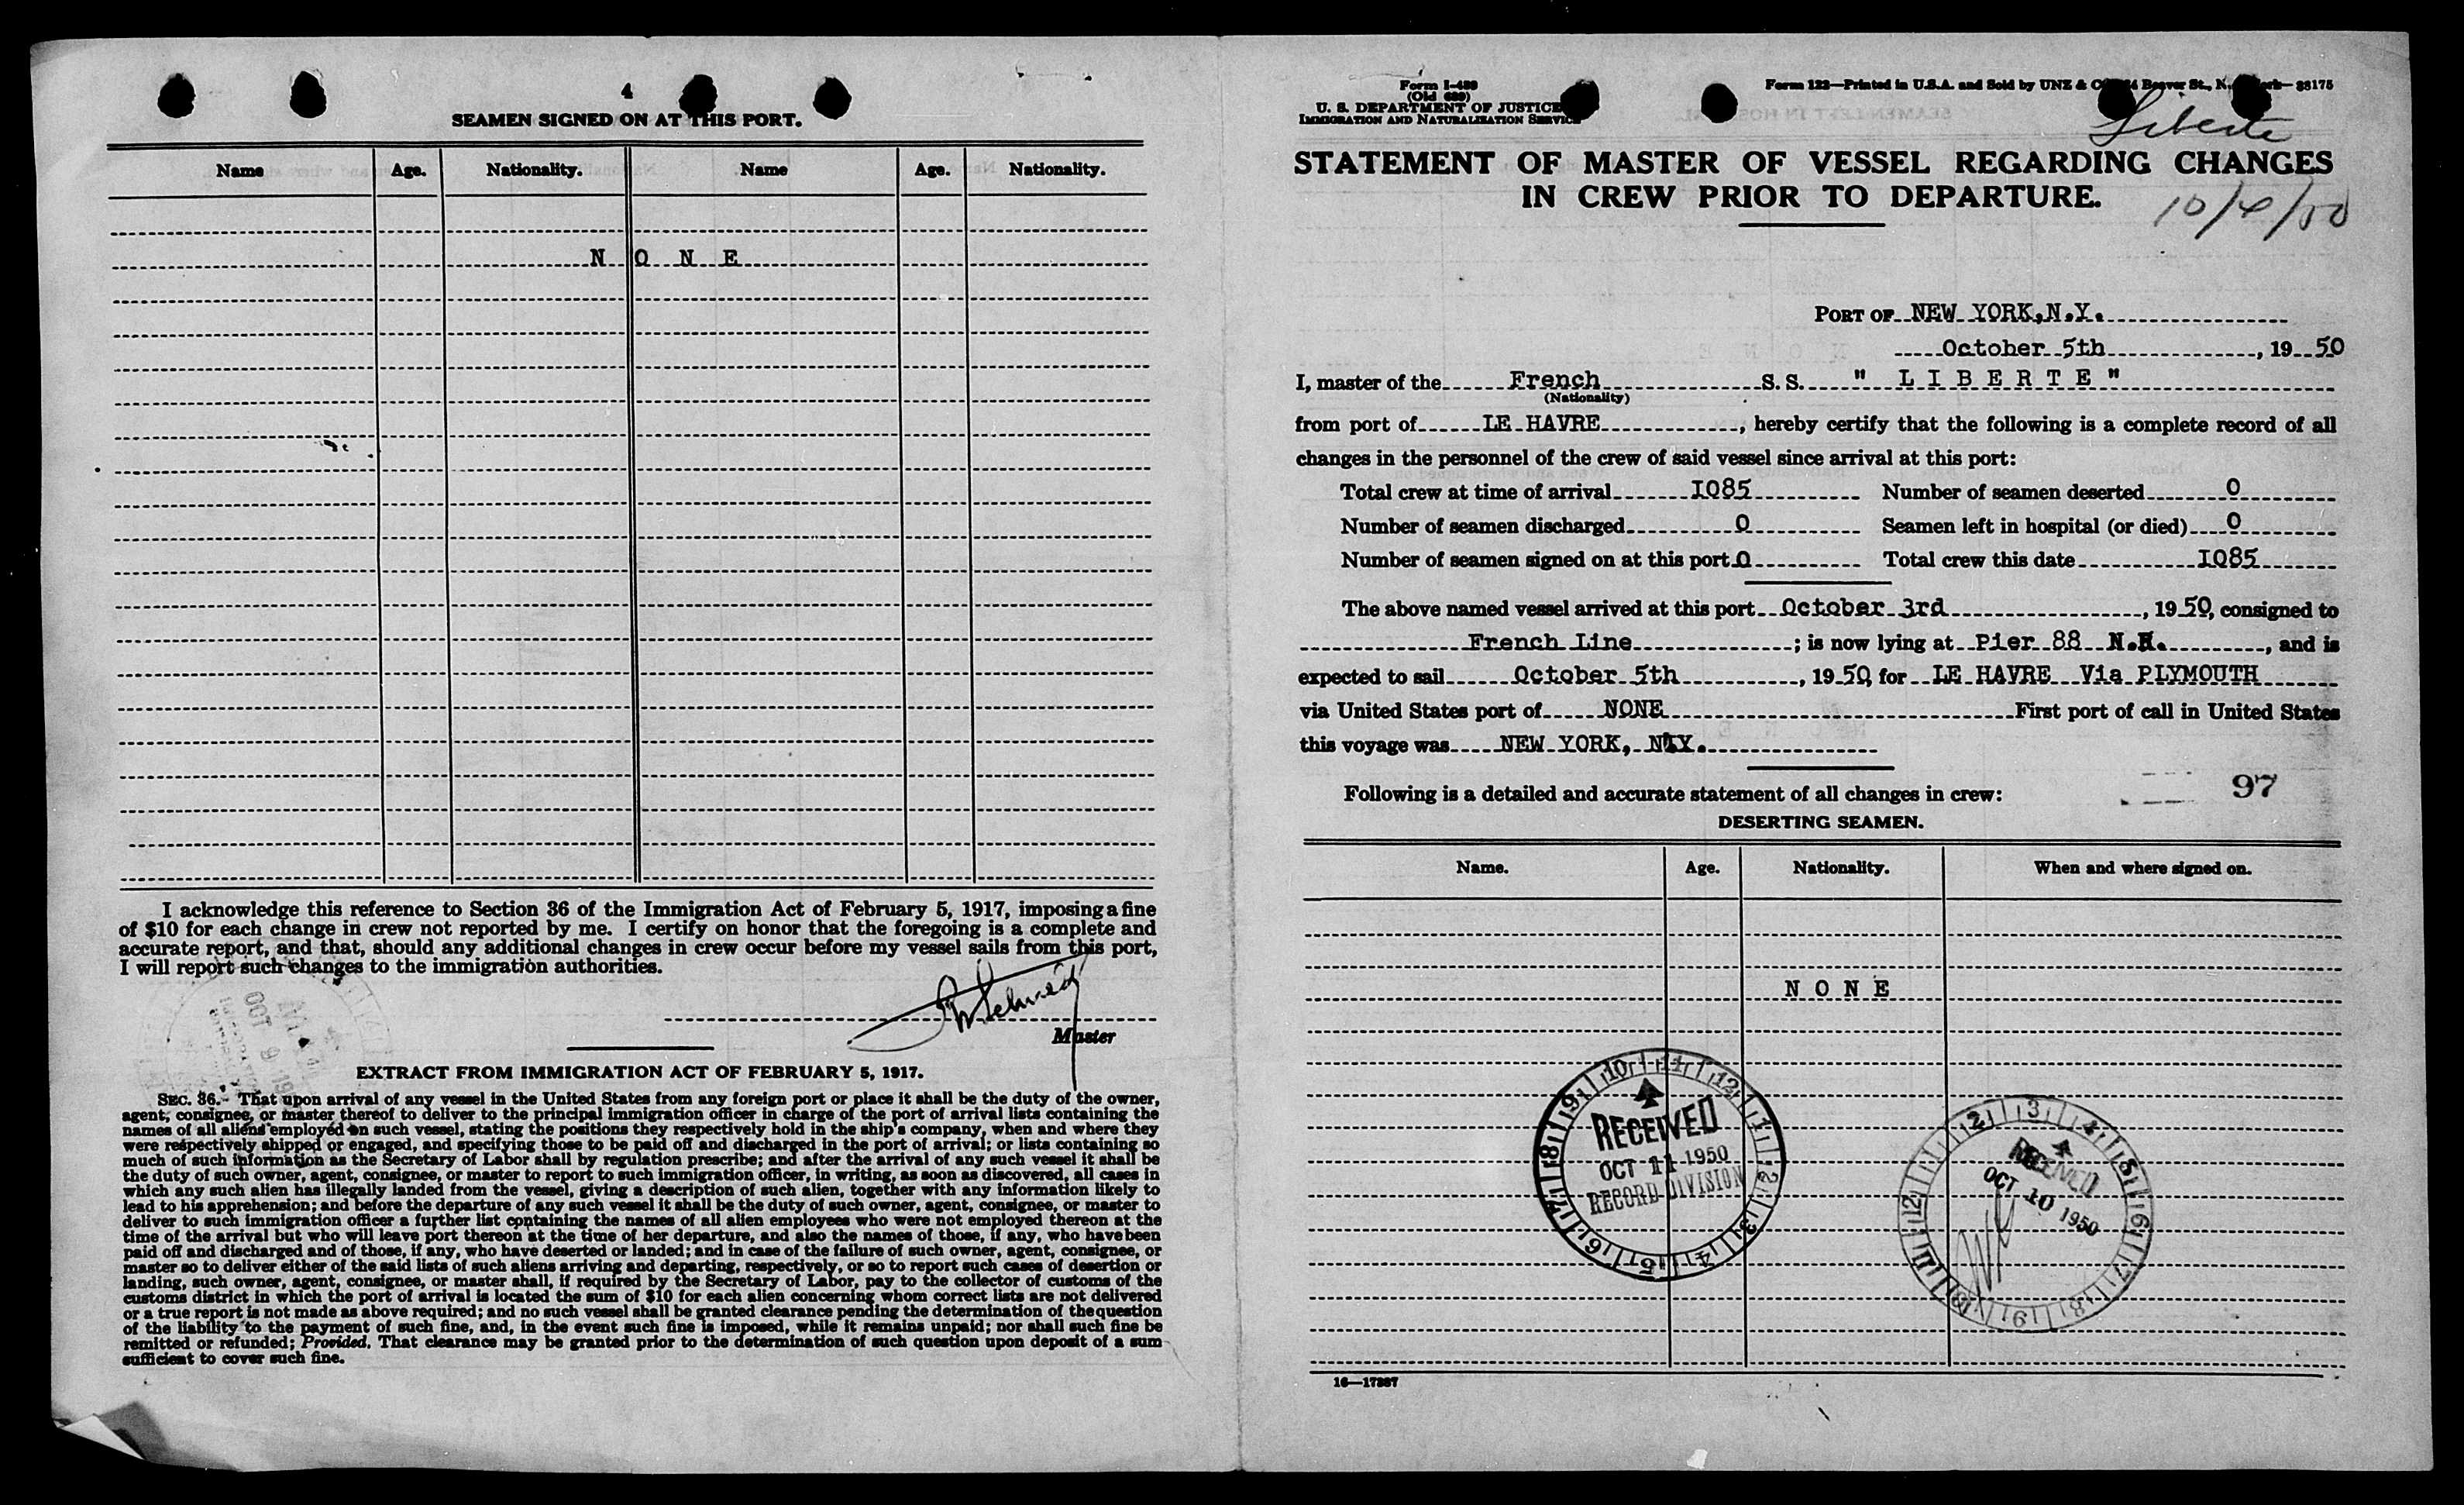 4
SEAMEN SIGNED ON AT THIS PORT.
Name Age. Nationality. Name Age. Nationality.
N O N E
I acknowledge this reference to Section 36 of the Immigration Act of February 5, 1917, imposing a fine
of $10 for each change in crew not reported by me. I certify on honor that the foregoing is a complete and
accurate report, and that, should any additional changes in crew occur before my vessel sails from this port,
I will report such changes to the immigration authorities.
Master
EXTRACT FROM IMMIGRATION ACT OF FEBRUARY 5, 1917.
SEC. 36. That upon arrival of any vessel in the United States from any foreign port or place it shall be the duty of the owner,
agent, consignee, or master thereof to deliver to the principal immigration officer in charge of the port of arrival lists containing the
names of all aliens employed on such vessel, stating the positions they respectively hold in the ship's company, when and where they
were respectively shipped or engaged, and specifying those to be paid off and discharged in the port of arrival; or lists containing so
much of such information as the Secretary of Labor shall by regulation prescribe; and after the arrival of any such vessel it shall be
the duty of such owner, agent, consignee, or master to report to such immigration officer, in writing, as soon as discovered, all cases in
which any such alien has illegally landed from the vessel, giving a description of such alien, together with any information likely to
lead to his apprehension; and before the departure of any such vessel it shall be the duty of such owner, agent, consignee, or master to
deliver to such immigration officer a further list containing the names of all alien employees who were not employed thereon at the
time of the arrival but who will leave port thereon at the time of her departure, and also the names of those, if any, who have been
paid off and discharged and of those, if any, who have deserted or landed; and in case of the failure of such owner, agent, consignee, or
master so to deliver either of the said lists of such aliens arriving and departing, respectively, or so to report such cases of desertion or
landing, such owner, agent, consignee, or master shall, if required by the Secretary of Labor, pay to the collector of customs of the
customs district in which the port of arrival is located the sum of $10 for each alien concerning whom correct lists are not delivered
or a true report is not made as above required; and no such vessel shall be granted clearance pending the determination of the question
of the liability to the payment of such fine, and, in the event such fine is imposed, while it remains unpaid; nor shall such fine be
remitted or refunded; Provided, That clearance may be granted prior to the determination of such question upon deposit of a sum
sufficient to cover such fine.
Form I-489
(Old 689)
U. S. DEPARTMENT OF JUSTICE
IMMIGRATION AND NATURALIZATION SERVICE
Form 122—Printed in U.S.A. and Sold by UNZ & Beaver St., N. 38175
Liberte
STATEMENT OF MASTER OF VESSEL REGARDING CHANGES
IN CREW PRIOR TO DEPARTURE.
10/4/50
PORT OF NEW YORK,N.Y.
October 5th, 19 50
I, master of the French S. S. " L I B E R T E "
(Nationality)
from port of LE HAVRE, hereby certify that the following is a complete record of all
changes in the personnel of the crew of said vessel since arrival at this port:
Total crew at time of arrival I085 Number of seamen deserted 0
Number of seamen discharged 0 Seamen left in hospital (or died) 0
Number of seamen signed on at this port 0 Total crew this date I085
The above named vessel arrived at this port October 3rd, 19 50, consigned to
French Line; is now lying at Pier 88 N.R., and is
expected to sail October 5th, 19 50, for LE HAVRE Via PLYMOUTH
via United States port of NONE First port of call in United States
this voyage was NEW YORK, N.Y.
97
Following is a detailed and accurate statement of all changes in crew:
DESERTING SEAMEN.
Name. Age. Nationality. When and where signed on.
N O N E
RECEIVED
OCT 11 1950
RECORD DIVISION
RECEIVED
OCT 10 1950
16—17887